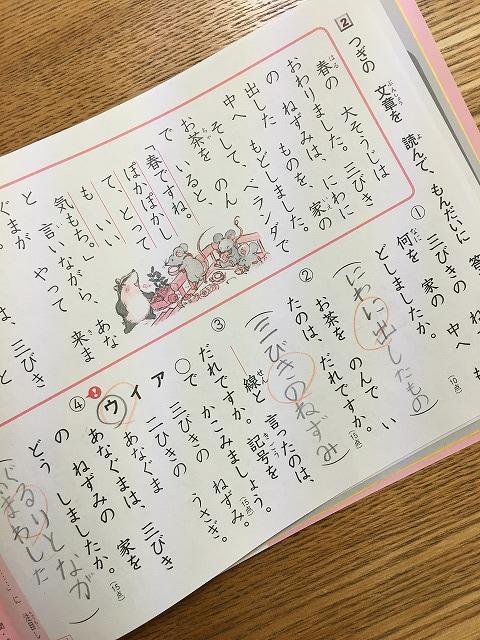 2 つぎの 文章を 読んで、もんだいに 答
ぶんしょう よ
春の 大そうじは
はる
おわりました。三びき
の ねずみは、にわに
出した ものを、家の
中へ もどしました。
そして、ベランダで
お茶を のん
で いると、
「春ですね。
ぽかぽかし
て、とって
も いい
気もち。」
と 言いながら、あな
ぐまが やって 来ま
は、三びき
① 三びきの 家の 中へ も
何を
どしましたか。(10点)
(にわに出したもの)
② お茶を のんで い
たのは、だれですか。(15点)
(三びきのねずみ)
③ ――線と 言ったのは、
だれですか。記号を
○で かこみましょう。(15点)
ア 三びきの ねずみ。
イ 二ひきの うさぎ。
ウ あなぐま
④ あなぐまは、三びき
の ねずみの 家を
どう しましたか。(15点)
るりとなが
まわした